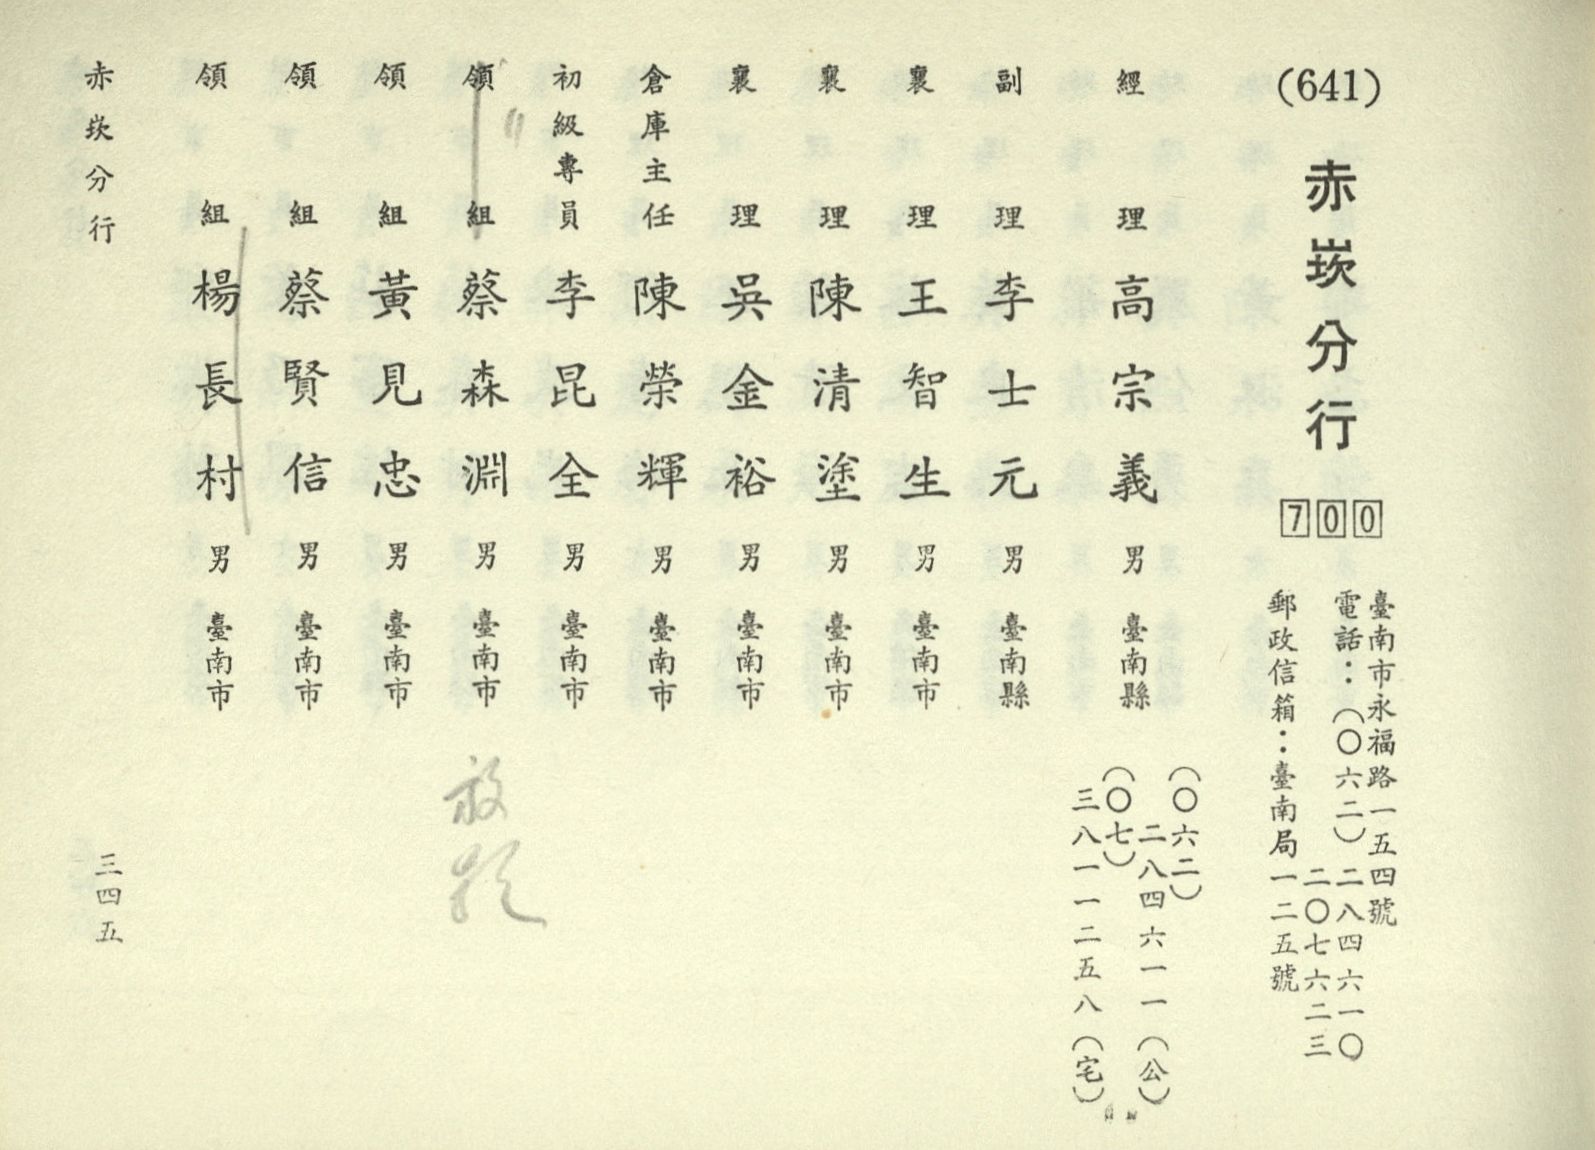 (641) 赤崁分行 700
臺南市永福路一五四號
電話：(〇六二)二八四六一〇
二〇七六二三
郵政信箱：臺南局一二五號
經理 高宗義 男 臺南縣
(〇六二)
二八四六一一(公)
(〇七)
三八一一二五八(宅)
副理 李士元 男 臺南縣
襄理 王智生 男 臺南市
襄理 陳清塗 男 臺南市
襄理 吳金裕 男 臺南市
倉庫主任 陳榮輝 男 臺南市
初級專員 李昆全 男 臺南市
領組 蔡森淵 男 臺南市
領組 黃見忠 男 臺南市
領組 蔡賢信 男 臺南市
領組 楊長村 男 臺南市
赤崁分行
三四五